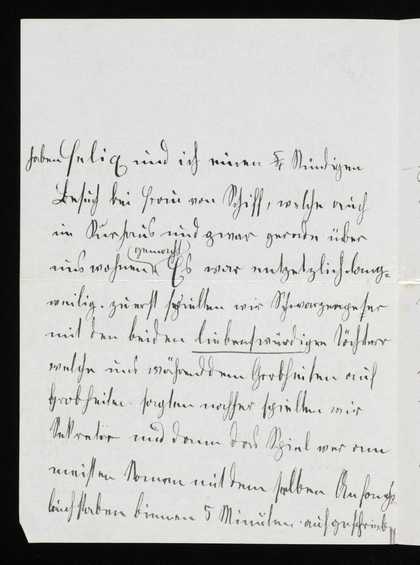 haben Felix und ich einen 5/4 Stündigen
Besuch bei Frau von Schiff, welche auch
im Kurhaus und zwar gerade über
uns wohnen gemacht Es war entzetzlich lang=
weilig. zuerst spielten wir Schwarzerpeter
mit den beiden liebenswürdigen Töchter
welche uns währenddem Grobheiten auf
Grobheiten sagten nachher spielten wir
Sekretär und dann das Spiel wer am
meisten Namen mit dem selben Anfangs
buchstaben binnen 5 Minuten aufgeschrieb